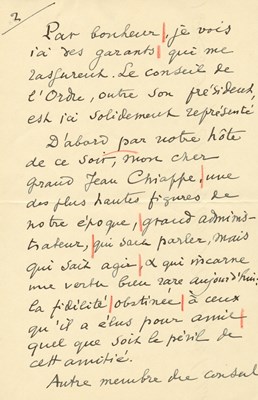 2
Par bonheur, je vois
ici des garants qui me
rassurent. Le conseil de
l'Ordre, outre son président,
est ici solidement représenté
D'abord par notre hôte
de ce soir, mon cher
grand Jean Chiappe, une
des plus hautes figures de
notre époque, grand adminis-
trateur, qui sait parler, mais
qui sait agir, & qui incarne
une vertu bien rare aujourd'hui:
la fidélité obstinée à ceux
qu'il a élus pour amis
quel que soit le péril de
cette amitié.
Autre membre du conseil